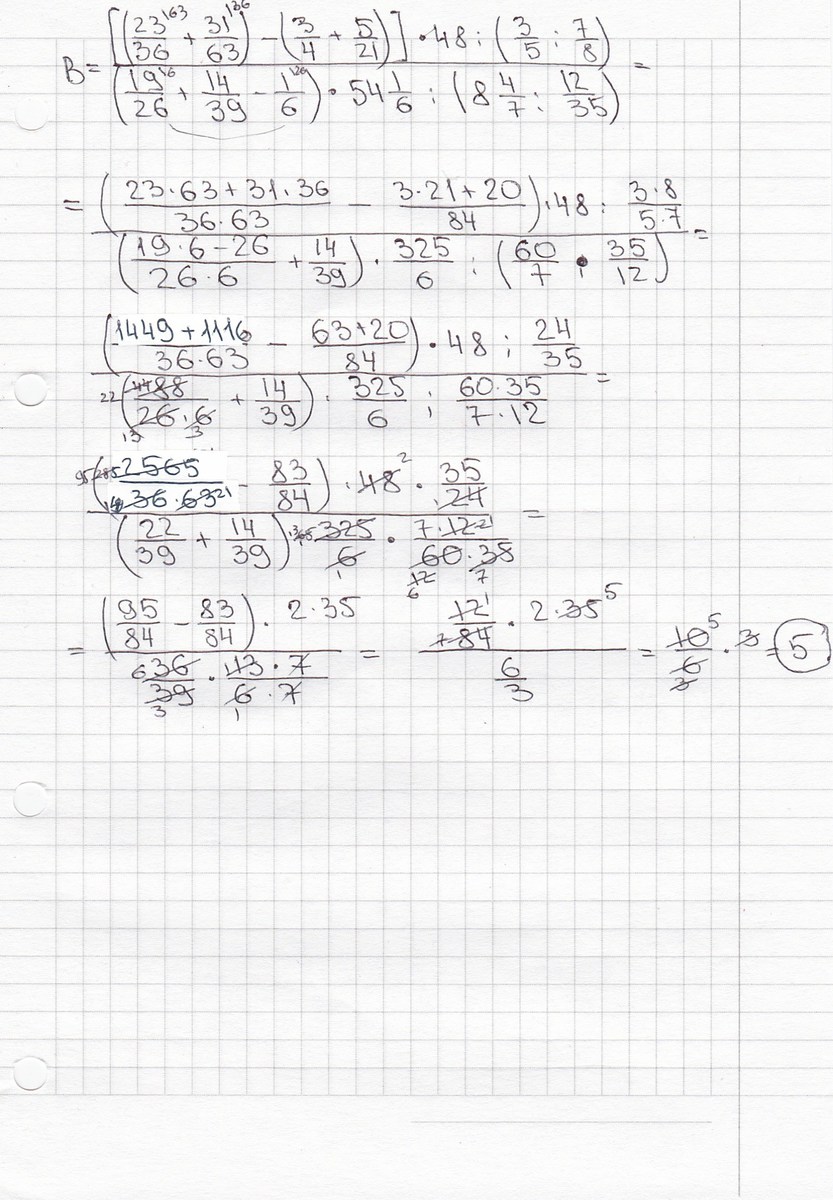 B = [(23/36 \63 + 31/63 \36) − (3/4 + 5/21)] · 48 : (3/5 : 7/8) =
(19/26 \6 + 14/39 − 1/6 \26) · 54 1/6 : (8 4/7 : 12/35)
= (23·63+31·36 / 36·63 − 3·21+20 / 84) · 48 : 3·8 / 5·7 =
(19·6−26 / 26·6 + 14/39) · 325/6 : (60/7 · 35/12)
(1449+1116 / 36·63 − 63+20 / 84) · 48 : 24/35 =
22 (44 88 / 26·6 + 14/39) · 325/6 : 60·35 / 7·12
13 3
95 285 (2565 / 36·63 21 − 83/84) · 48 2 · 35/24 =
(22/39 + 14/39) · 325/6 · 7·12 / 60·35
1 12 6 7
= (95/84 − 83/84) · 2·35 = 12 1 / 7 84 · 2·35 5 = 10 5 / 6 3 · 3 = 5
6 36 / 39 3 · 13·7 / 6·7 1 6/3